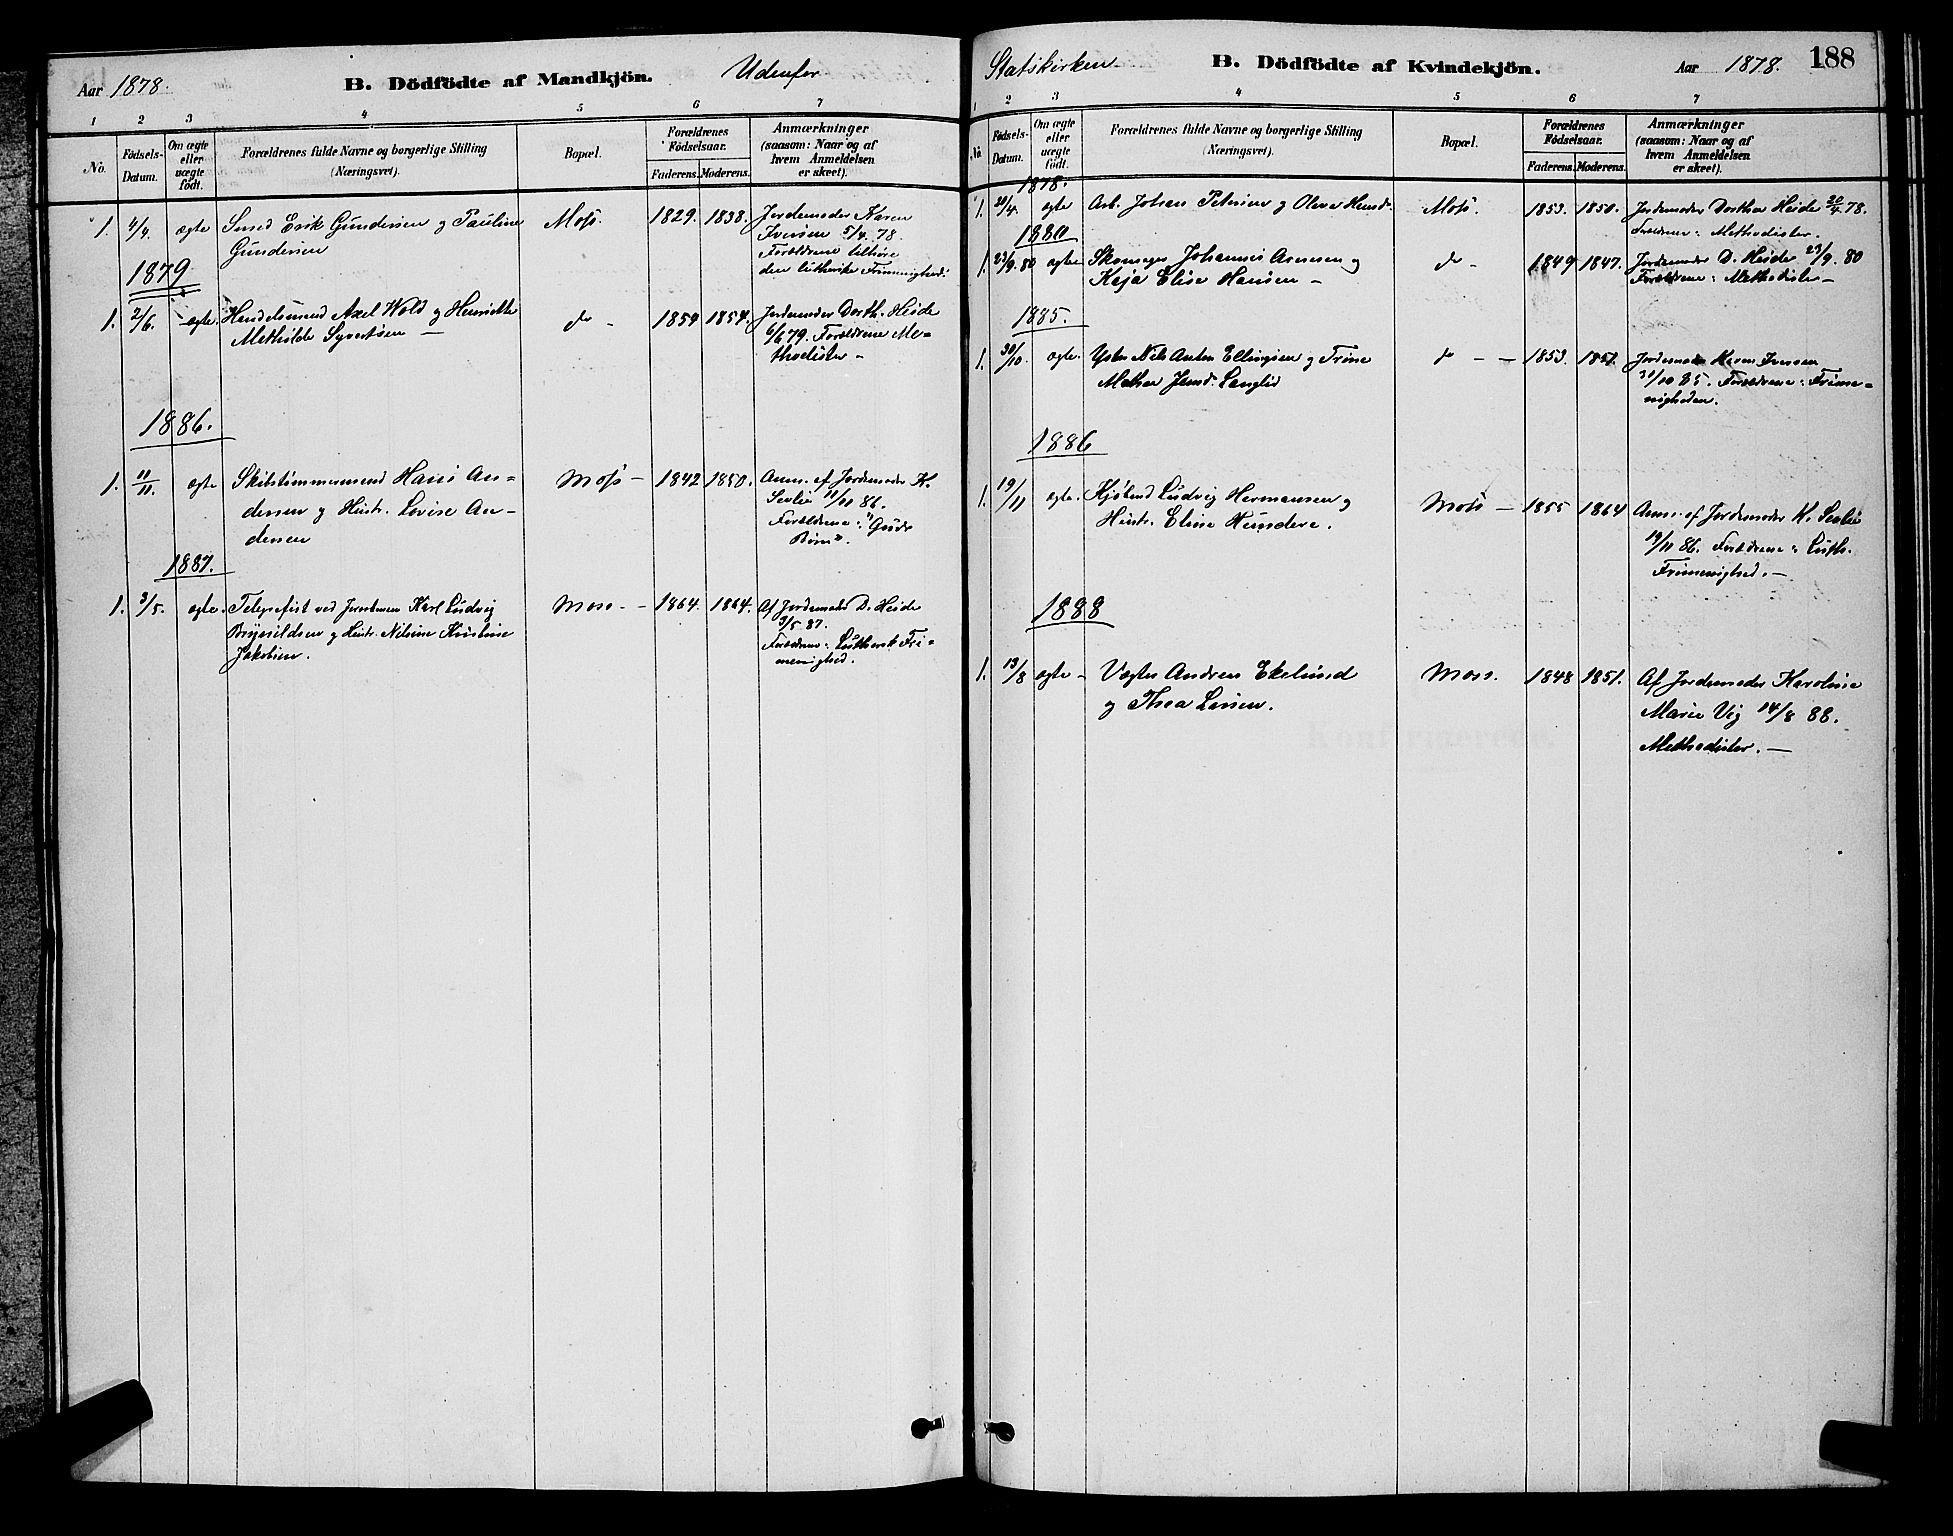 Aar 1878. B. Dödfödte af Mandkjön. Udenfor
1 2 3 4 5 6 7
No. Födsels-Datum. Om ægte eller uægte födt. Forældrenes fulde Navne og borgerlige Stilling (Næringsvei). Bopæl. Forældrenes Födselsaar. Faderens. Moderens. Anmærkninger (saasom: Naar og af hvem Anmeldelsen er skeet).
1. 4/4. ægte Smed Erik Gundersen og Pauline Moss. 1829. 1838. Jordemoder Karen
Gundersen Iversen 5/4. 78.
Forældrene tilhøre
den lutherske Frimenighed.
1879
1. 2/6. ægte. Handelsmand Axel Wold og Henriette do - 1854 1854. Jordemoder Dorth. Heide
Methilde Syvertsen — 6/6 79. Forældrene Me-
thodister -
1886.
1. 11/11. ægte Skibstømmermand Hans An- Moss - 1842 1850. Anm. af Jordemoder K.
dersen og Hustr. Lovise An- Seolie 11/11 86.
dersen Forældrene: "Guds
Børn".
1887.
1. 3/5. ægte. Telegrafist ved Jernbanen Karl Ludvig Moss - - 1864. 1864. Af Jordemoder D. Heide
Brynildsen og Hustr. Nilsine Kristine 3/5 87.
Jakobsen. Forældrene: Luthersk Fri-
menighed.
Statskirken. B. Dödfödte af Kvindekjön. Aar 1878. 188
1 2 3 4 5 6 7
No. Födsels-Datum. Om ægte eller uægte födt. Forældrenes fulde Navne og borgerlige Stilling (Næringsvei). Bopæl. Forældrenes Födselsaar. Faderens. Moderens. Anmærkninger (saasom: Naar og af hvem Anmeldelsen er skeet).
1878.
1. 20/4. ægte Arb. Johan Petersen og Oleva Hansd. Moss. 1853. 1850. Jordemoder Dorthea Heide 20/4. 78.
Forældrene: Methodister.
1880
1. 23/9. 80 ægte Skomager Johannes Arnesen og do - 1849 1847. Jordemoder D. Heide 23/9. 80
Kaja Elise Hansen - Forældrene: Methodister -
1885.
1. 30/10. ægte. Nils Anton Ellingsen og Trine do - - 1853. 1851. Jordemoder Karen Iversen
Mathea Jensd. Langlid 31/10 85. Forældrene: Frime-
nigheden.
1886
1. 19/11 ægte. Kjøbmd Ludvig Hermansen og Moss - 1855 1864 Anm. af Jordemoder K. Seolie
Hustr. Elise Hundere. 19/11 86. Forældrene: Luth.
Frimenighed. -
1888
1. 13/8 ægte - Vægter Andreas Ekelund Moss. 1848 1851. Af Jordemoder Karoline
og Thea Larsen. Marie Vig 14/8 88.
Methodister. -